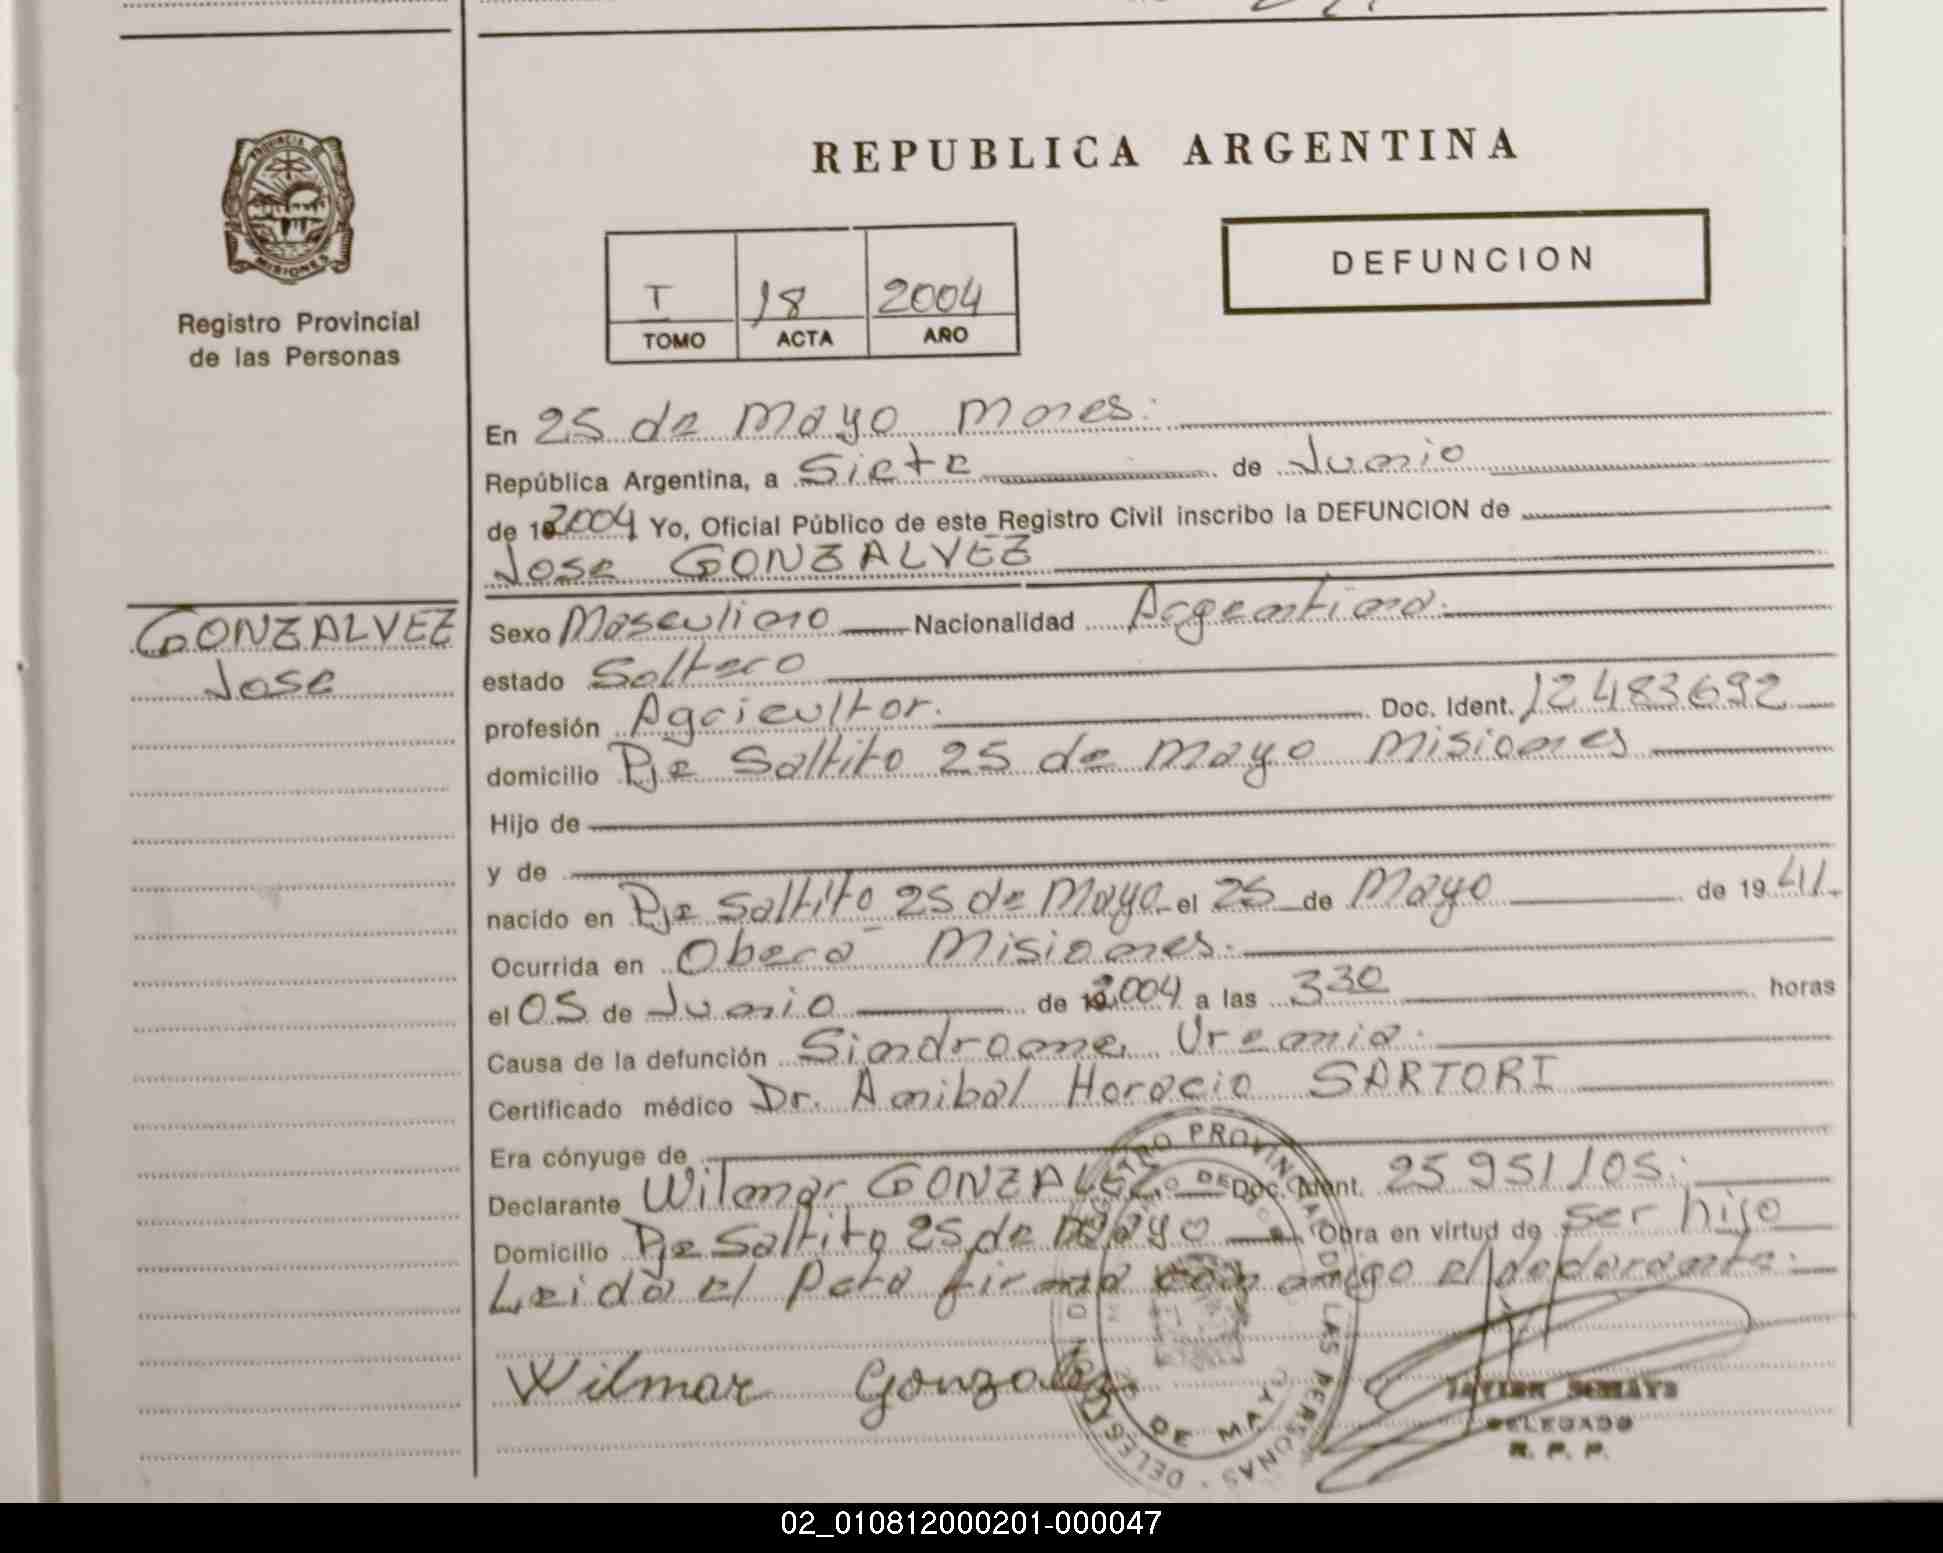 PROVINCIA DE
MISIONES
Registro Provincial
de las Personas
REPUBLICA ARGENTINA
T 18 2004
TOMO ACTA AÑO
DEFUNCION
En 25 de Mayo Mnes:
República Argentina, a Siete de Junio
de 2004 Yo, Oficial Público de este Registro Civil inscribo la DEFUNCION de
Jose GONZALVEZ
GONZALVEZ
Jose
Sexo Masculino Nacionalidad Argentina.
estado Soltero
profesión Agricultor. Doc. Ident. 12483692
domicilio Pje Saltito 25 de Mayo Misiones
Hijo de
y de
nacido en Pje Saltito 25 de Mayo el 25 de Mayo de 1941.
Ocurrida en Obera Misiones.
el 05 de Junio de 2004 a las 330 horas
Causa de la defunción Sindrome Uremia.
Certificado médico Dr. Anibal Horacio SARTORI
Era cónyuge de
Declarante Wilmar GONZALEZ Doc. Ident. 25951105.
Domicilio Pje Saltito 25 de Mayo Obra en virtud de ser hijo
Leida el Acta firma con migo el declarante.
Wilmar Gonzalez
REGISTRO PROVINCIAL DE LAS PERSONAS
DE MAYO
JAVIER
DELEGADO
R. P. P.
02_010812000201-000047